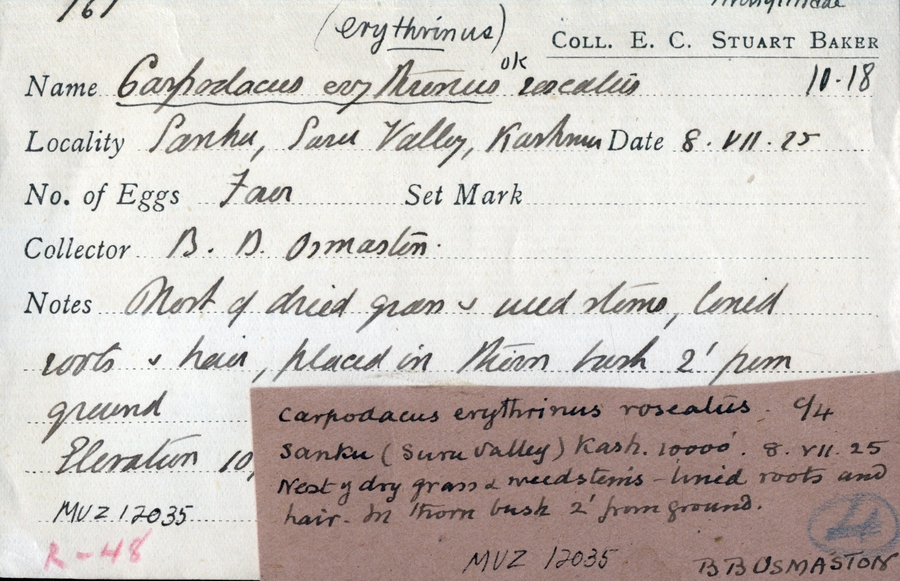 161
(erythrinus)
COLL. E. C. STUART BAKER
Name Carpodacus erythrinus ok roseatus 10.18
Locality Sanku, Suru Valley, Kashmir Date 8. VII. 25
No. of Eggs Four Set Mark
Collector B. B. Osmaston.
Notes Nest of dried grass & weed stems, lined
roots & hair, placed in thorn bush 2' from
ground
Elevation 10,
MUZ 12035
R-48
Carpodacus erythrinus roseatus. C/4
Sanku (Suru Valley) Kash. 10000'. 8. VII. 25
Nest of dry grass & weedstems - lined roots and
hair. In thorn bush 2' from ground.
MUZ 12035
B B OSMASTON